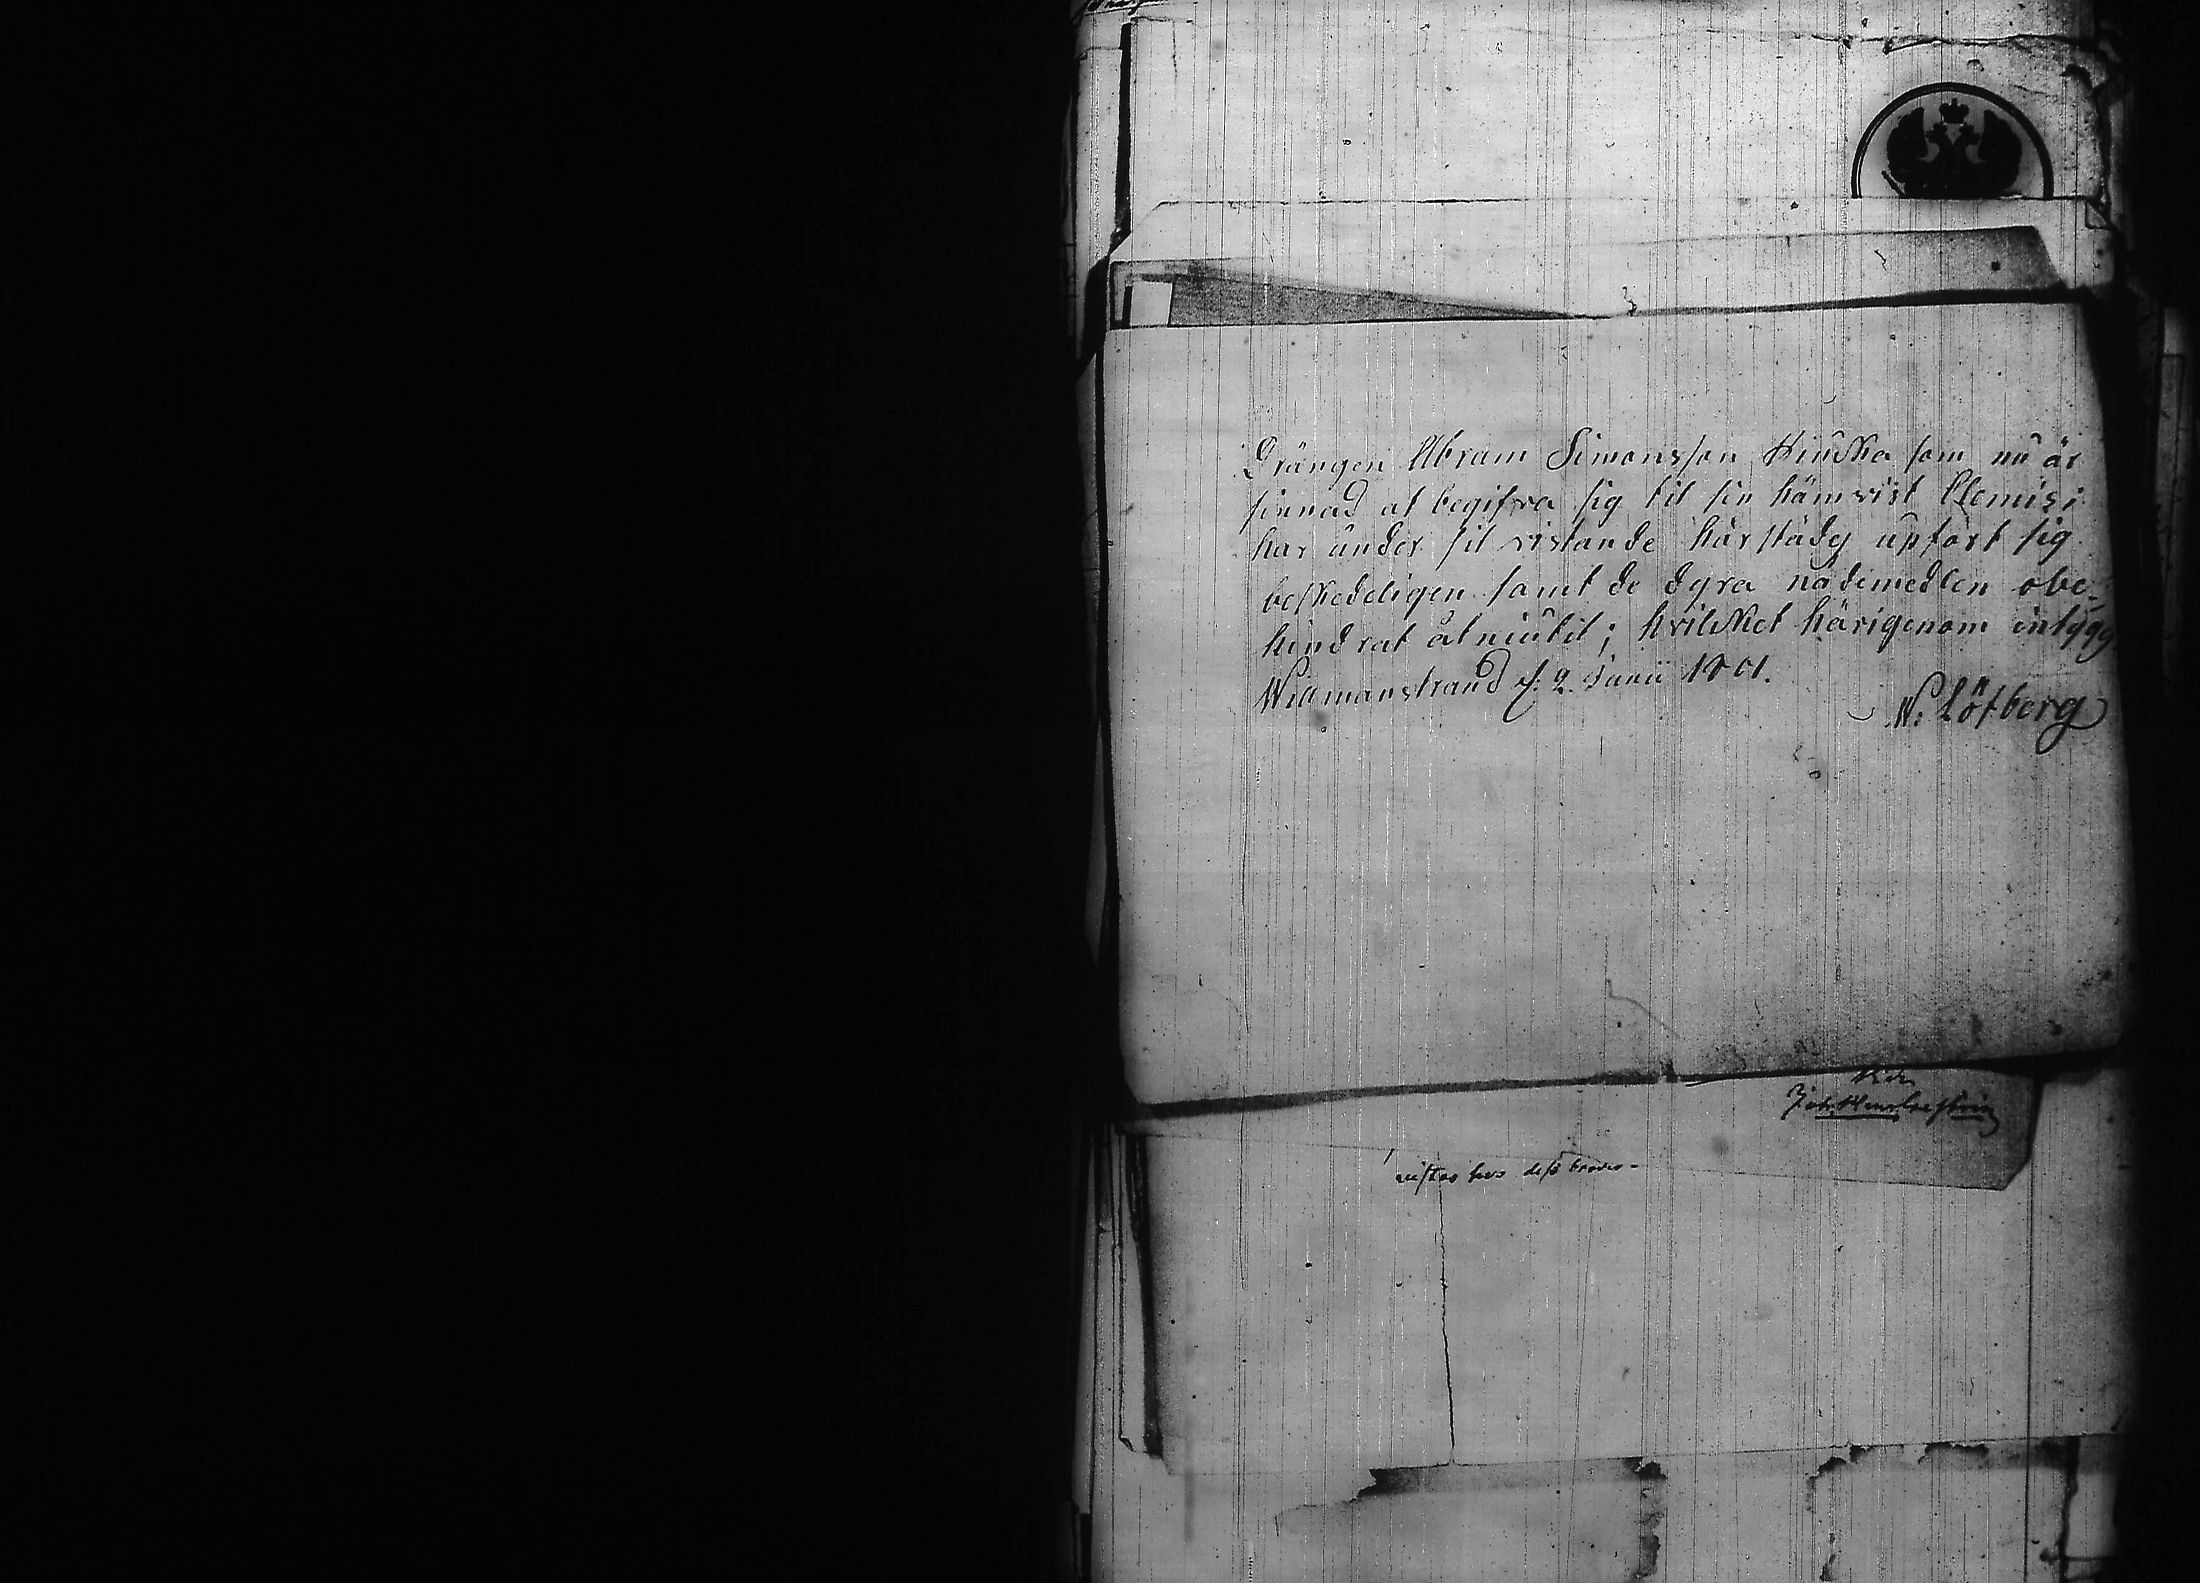 Drängen Abram Simonsson Kiuska som nu är
sinnad at begifva sig til sin hämvist Clemis i
har under sit vistande härstädz upfört sig
beskedeligen samt de dyra nådemedlen obe-
hindrat åtniutit; hvilcket härigenom intygg.
Willmanstrand d. 2. Junii 1801.
W: Löfberg
vistas hos dess broder